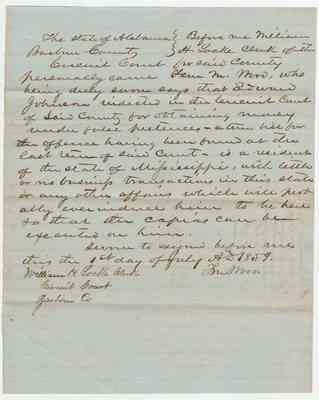 The State of Alabama } Before me William
Barbour County } H. Locke Clerk of the
Circuit Court for said County
personally came M. Wood, who
being duly sworn says that Edward
Johnson indicted in the Circuit Court
of Said County for obtaining money
under false pretences - a true bill for
the offence having been found at the
last term of said Court - is a resident
of the State of Mississippi, with little
or no business transactions in this State
or any other affairs which will
ally ever induce him to be here
so that the capias can be
executed on him.
Sworn to before me
this the 1st day of July AD 1859.
William H. Locke Clerk
Circuit Court
Co